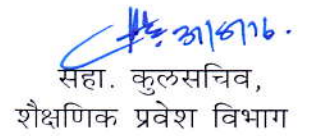 31/8/16.
सहा. कुलसचिव,
शैक्षणिक प्रवेश विभाग